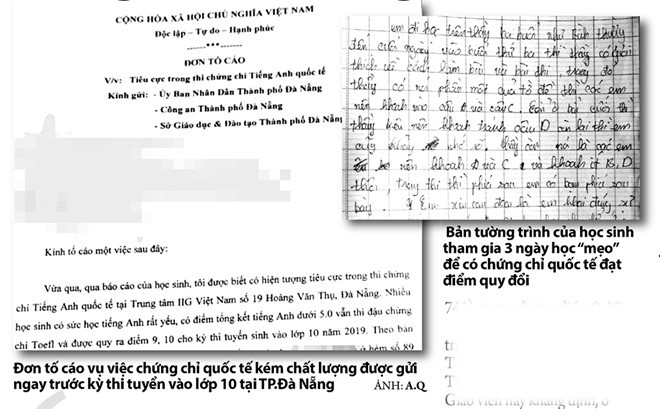 CỘNG HÒA XÃ HỘI CHỦ NGHĨA VIỆT NAM
Độc lập – Tự do – Hạnh phúc
-------***-------
ĐƠN TỐ CÁO
V/v: Tiêu cực trong thi chứng chỉ Tiếng Anh quốc tế
Kính gửi: - Ủy Ban Nhân Dân Thành phố Đà Nẵng
- Công an Thành phố Đà Nẵng
- Sở Giáo dục & Đào tạo Thành phố Đà Nẵng
Kính tố cáo một việc sau đây:
Vừa qua, qua báo cáo của học sinh, tôi được biết có hiện tượng tiêu cực trong thi chứng
chỉ Tiếng Anh quốc tế tại Trung tâm IIG Việt Nam số 19 Hoàng Văn Thụ, Đà Nẵng. Nhiều
học sinh có sức học tiếng Anh rất yếu, có điểm tổng kết tiếng Anh dưới 5.0 vẫn thi đậu chứng
chỉ Toefl và được quy ra điểm 9, 10 cho kỳ thi tuyển sinh vào lớp 10 năm 2019. Theo ban
ở hẻm số 89
Đơn tố cáo vụ việc chứng chỉ quốc tế kém chất lượng được gửi
ngay trước kỳ thi tuyển vào lớp 10 tại TP.Đà Nẵng
ẢNH: A.Q
em đi học trên thầy ba buổi như bình thường
đến cuối ngày vào buổi thứ ba thì thầy có giải
thích về cách làm bài và bài thi, trong đó
thầy có nói phần một quá tố để thì các em
nên khoanh vào câu B và câu C. Còn ở bài cuối thì
thầy kêu nên khoanh tránh câu D còn lại thì em
cũng không nhớ rõ. Thầy còn nói là các em
nên khoanh B và C và khoanh ít B, D
trong thi thì phía sau em có bạn phía sau
này. Em xin cam đoan là em khai đúng sự
Bản tường trình của học sinh
tham gia 3 ngày học “mẹo”
để có chứng chỉ quốc tế đạt
điểm quy đổi
Giáo viên này khẳng định, ở